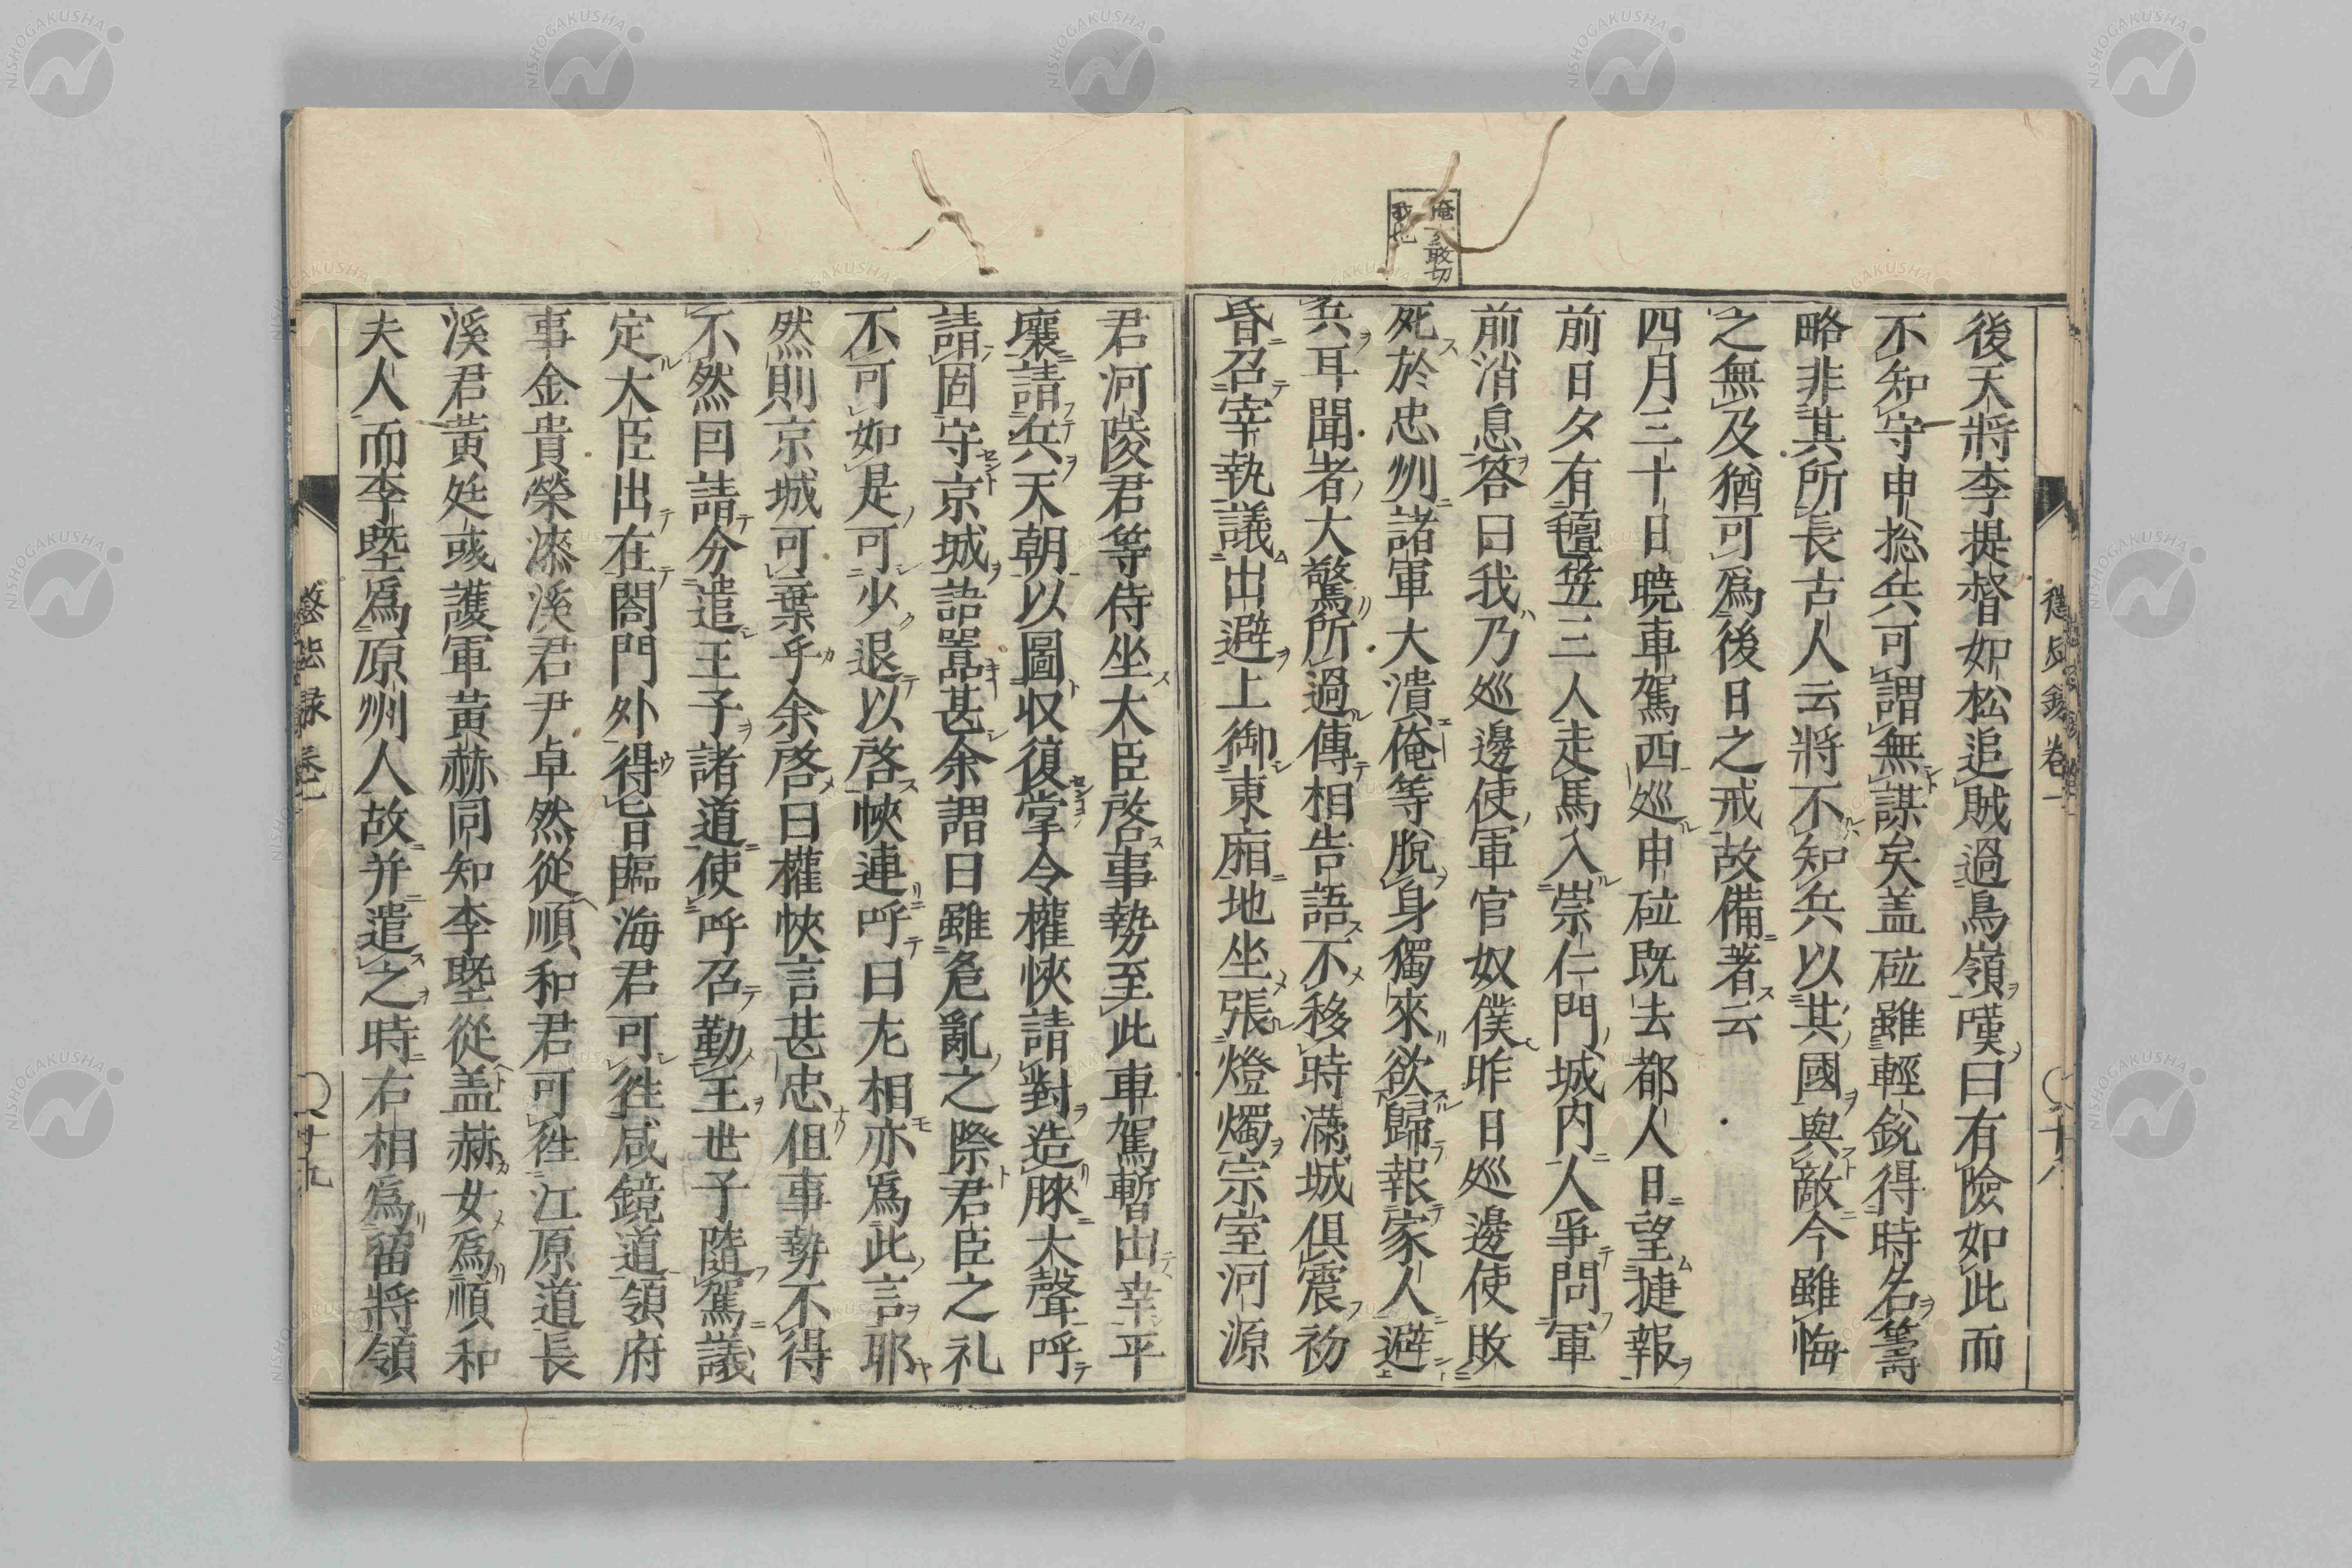 俺〻敢切
我也
後天將李提督如松追賊過鳥嶺嘆曰有險如此而
不知守申捴兵可謂無謀矣盖砬雖輕銳得時名籌
略非其所長古人云將不知兵以其國與敵今雖悔
之無及猶可爲後日之戒故備著云
四月三十日曉車駕西巡申砬既去都人日望捷報
前日夕有氊笠三人走馬入崇仁門城内人爭問軍
前消息答曰我乃巡邊使軍官奴僕昨日巡邊使敗
死於忠州諸軍大潰俺等脫身獨來欲歸報家人避
兵耳聞者大驚所過傳相告語不移時滿城俱震初
昏召宰執議出避上御東廂地坐張燈燭宗室河源
懲毖錄 卷一
〇 十八
君河陵君等侍坐大臣啓事勢至此車駕暫出幸平
壤請兵天朝以圖收復掌令權悏請對造膝大聲呼
請固守京城語囂甚余謂曰雖危亂之際君臣之礼
不可如是可少退以啓悏連呼曰左相亦爲此言耶
然則京城可棄乎余啓曰權悏言甚忠但事勢不得
不然因請分遣王子諸道使呼召勤王世子隨駕議
定大臣出在閤門外得旨臨海君可徃咸鏡道領府
事金貴榮漆溪君尹卓然從順和君可徃江原道長
溪君黃廷彧護軍黃赫同知李塈從盖赫女爲順和
夫人而李塈爲原州人故并遣之時右相爲留將領
懲毖録 卷一
〇 十九